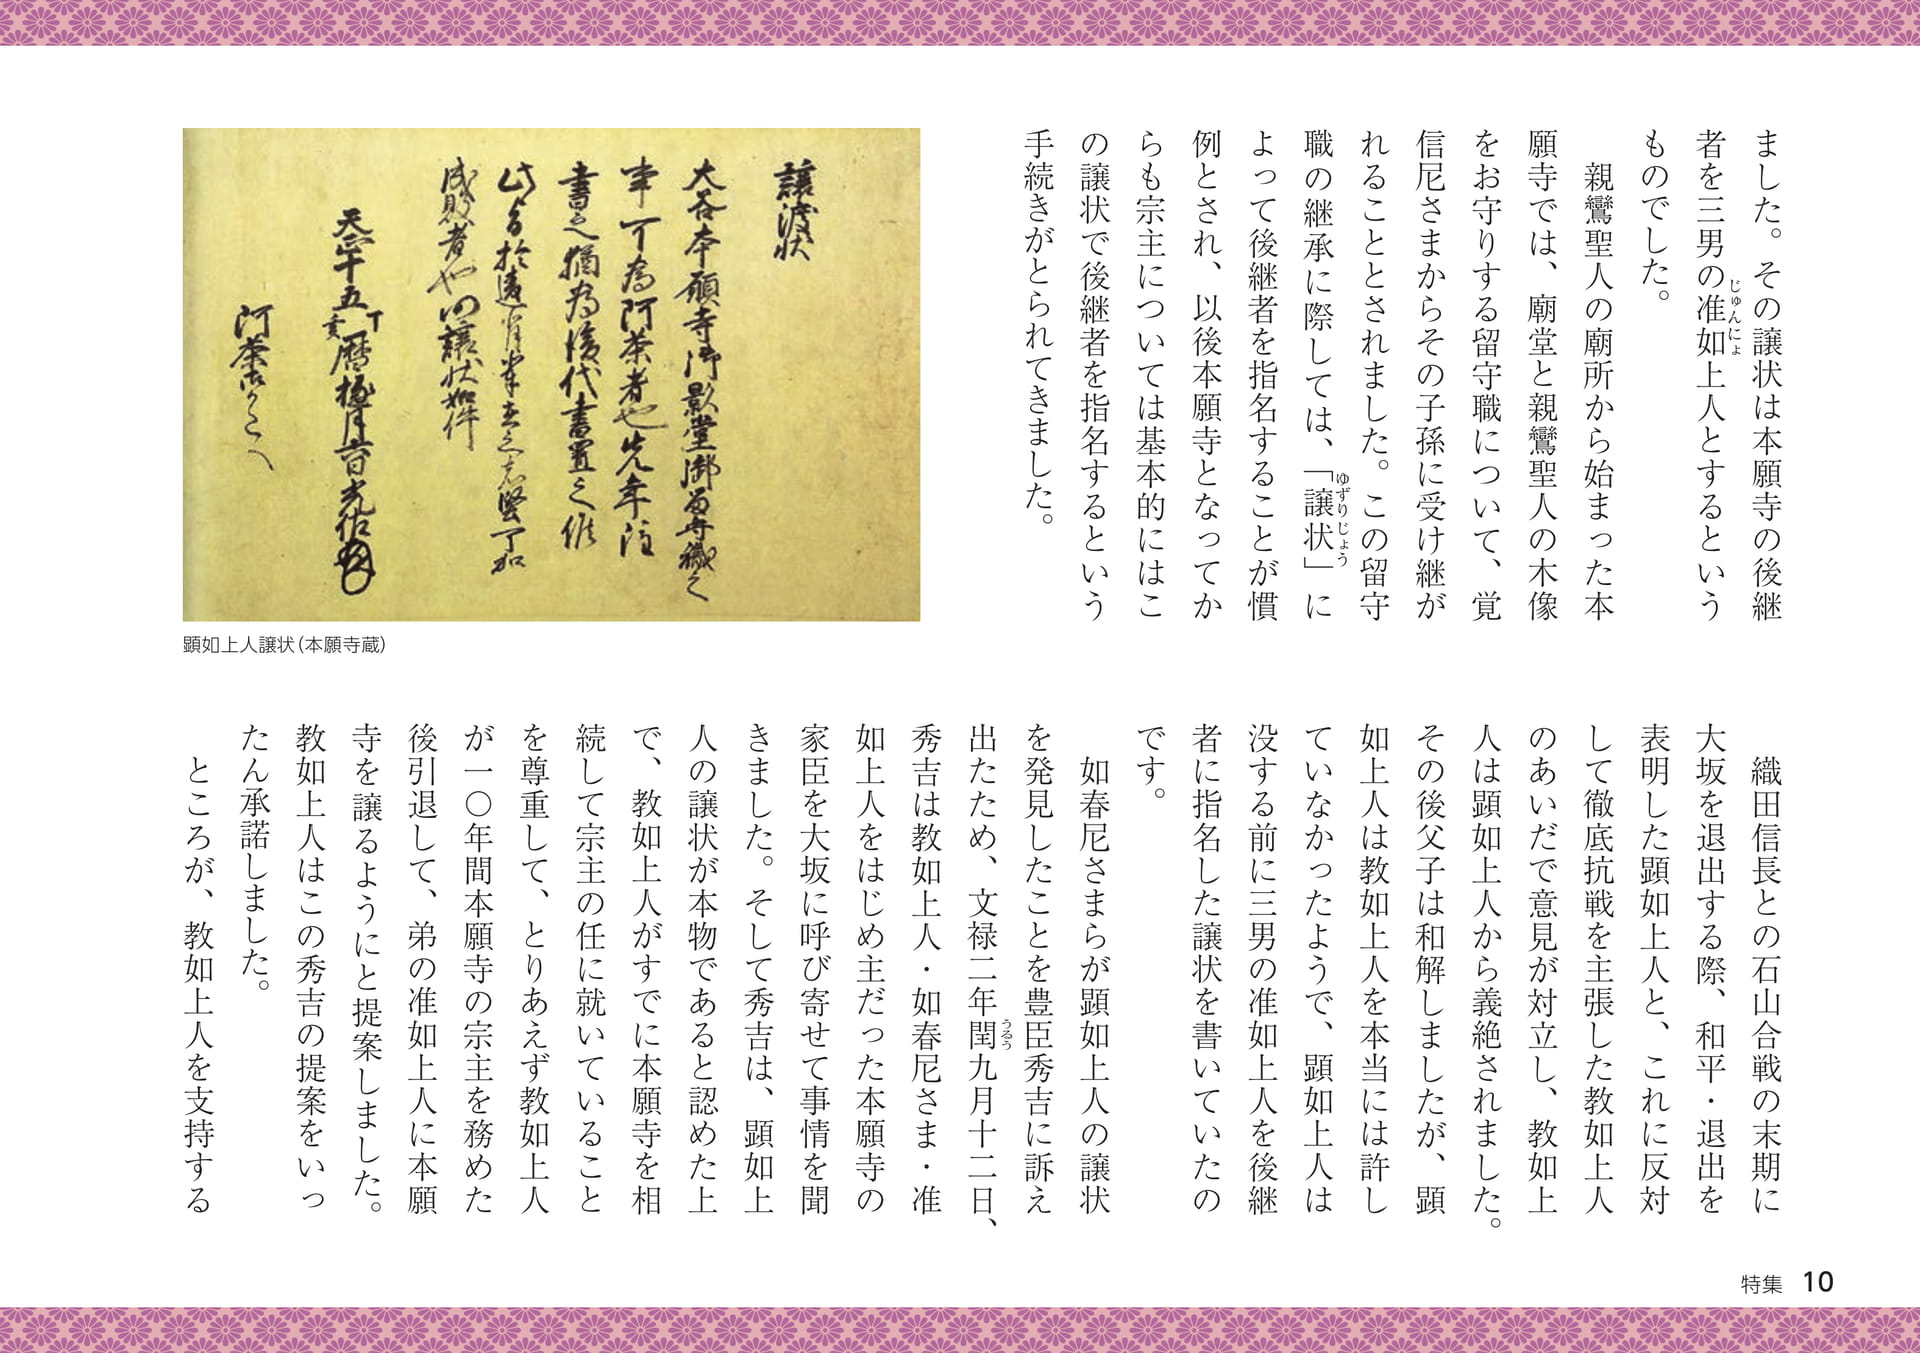 ました。その譲状は本願寺の後継
者を三男の准如上人とするという
じゅんにょ
ものでした。
親鸞聖人の廟所から始まった本
願寺では、廟堂と親鸞聖人の木像
をお守りする留守職について、覚
信尼さまからその子孫に受け継が
れることとされました。この留守
職の継承に際しては、「譲状」に
ゆずりじょう
よって後継者を指名することが慣
例とされ、以後本願寺となってか
らも宗主については基本的にはこ
の譲状で後継者を指名するという
手続きがとられてきました。
譲渡状
大谷本願寺御影堂御留守職之
事可為阿茶者也先年注
書之猶為後代書置之候
此旨於違背輩在之者堅可加
成敗者也仍譲状如件
天正十五丁亥暦極月六日光佐
阿茶
顕如上人譲状（本願寺蔵）
織田信長との石山合戦の末期に
大坂を退出する際、和平・退出を
表明した顕如上人と、これに反対
して徹底抗戦を主張した教如上人
のあいだで意見が対立し、教如上
人は顕如上人から義絶されました。
その後父子は和解しましたが、顕
如上人は教如上人を本当には許し
ていなかったようで、顕如上人は
没する前に三男の准如上人を後継
者に指名した譲状を書いていたの
です。
如春尼さまらが顕如上人の譲状
を発見したことを豊臣秀吉に訴え
出たため、文禄二年閏九月十二日、
うるう
秀吉は教如上人・如春尼さま・准
如上人をはじめ主だった本願寺の
家臣を大坂に呼び寄せて事情を聞
きました。そして秀吉は、顕如上
人の譲状が本物であると認めた上
で、教如上人がすでに本願寺を相
続して宗主の任に就いていること
を尊重して、とりあえず教如上人
が一〇年間本願寺の宗主を務めた
後引退して、弟の准如上人に本願
寺を譲るようにと提案しました。
教如上人はこの秀吉の提案をいっ
たん承諾しました。
ところが、教如上人を支持する
特集 10